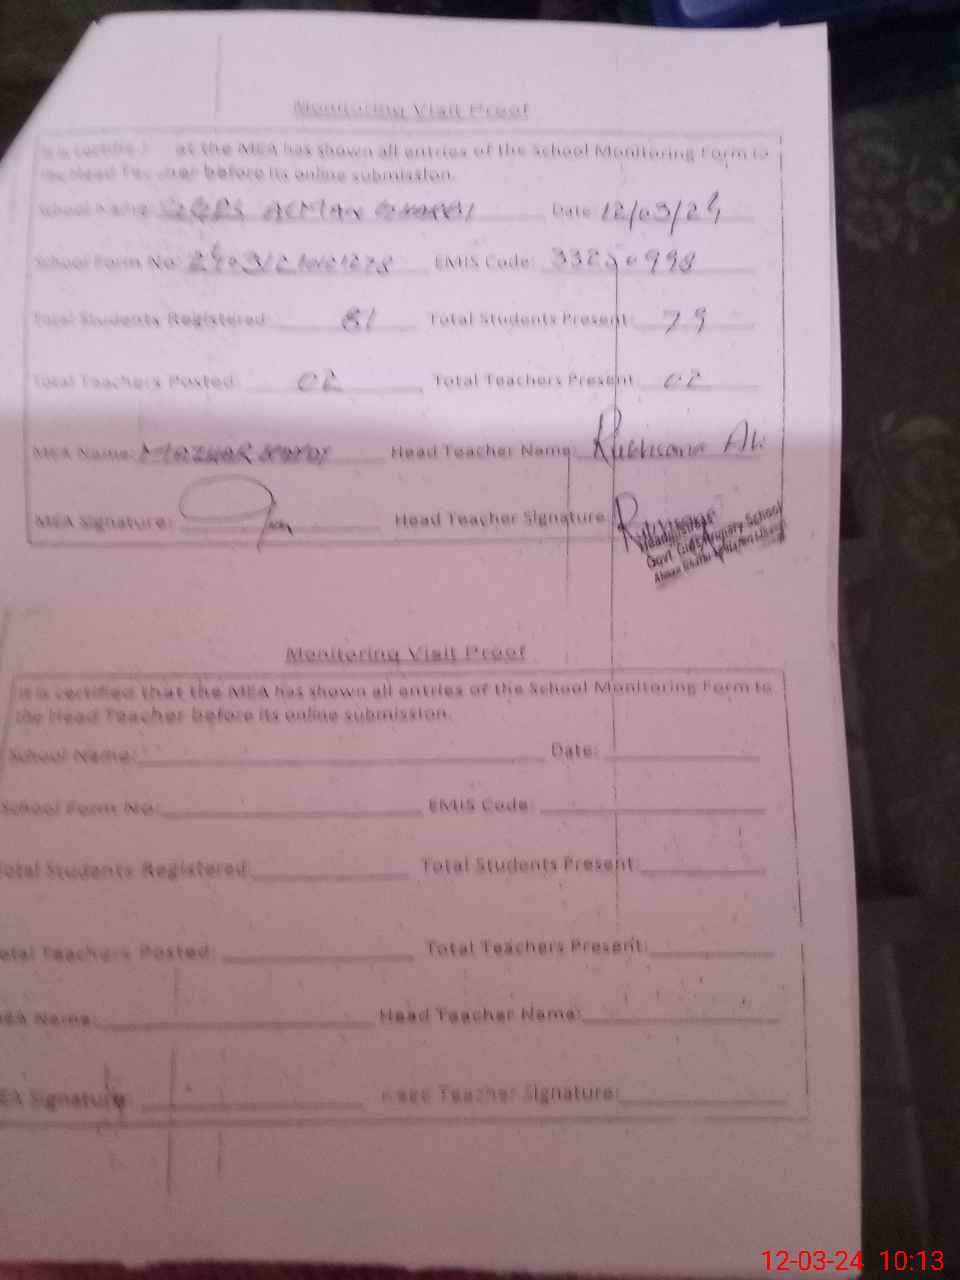 Monitoring Visit Proof
It is certified at the MEA has shown all entries of the School Monitoring Form to
the Head Teacher before its online submission.
School Name: GGPS Date: 12/03/24
School Form No: EMIS Code: 33250998
Total Students Registered: 81 Total Students Present: 79
Total Teachers Posted: 02 Total Teachers Present: 02
MEA Name: MAZHAR Head Teacher Name: Rukhsana
MEA Signature: Head Teacher Signature:
Headmistress
Govt. Girls Primary School
Monitoring Visit Proof
It is certified that the MEA has shown all entries of the School Monitoring Form to
the Head Teacher before its online submission.
School Name: Date:
School Form No: EMIS Code:
Total Students Registered: Total Students Present:
otal Teachers Posted: Total Teachers Present:
EA Name: Head Teacher Name:
EA Signature: Teacher Signature:
12-03-24 10:13